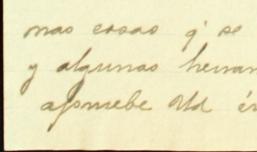 mas cosas q' se
y algunas herram
apruebe Ud é